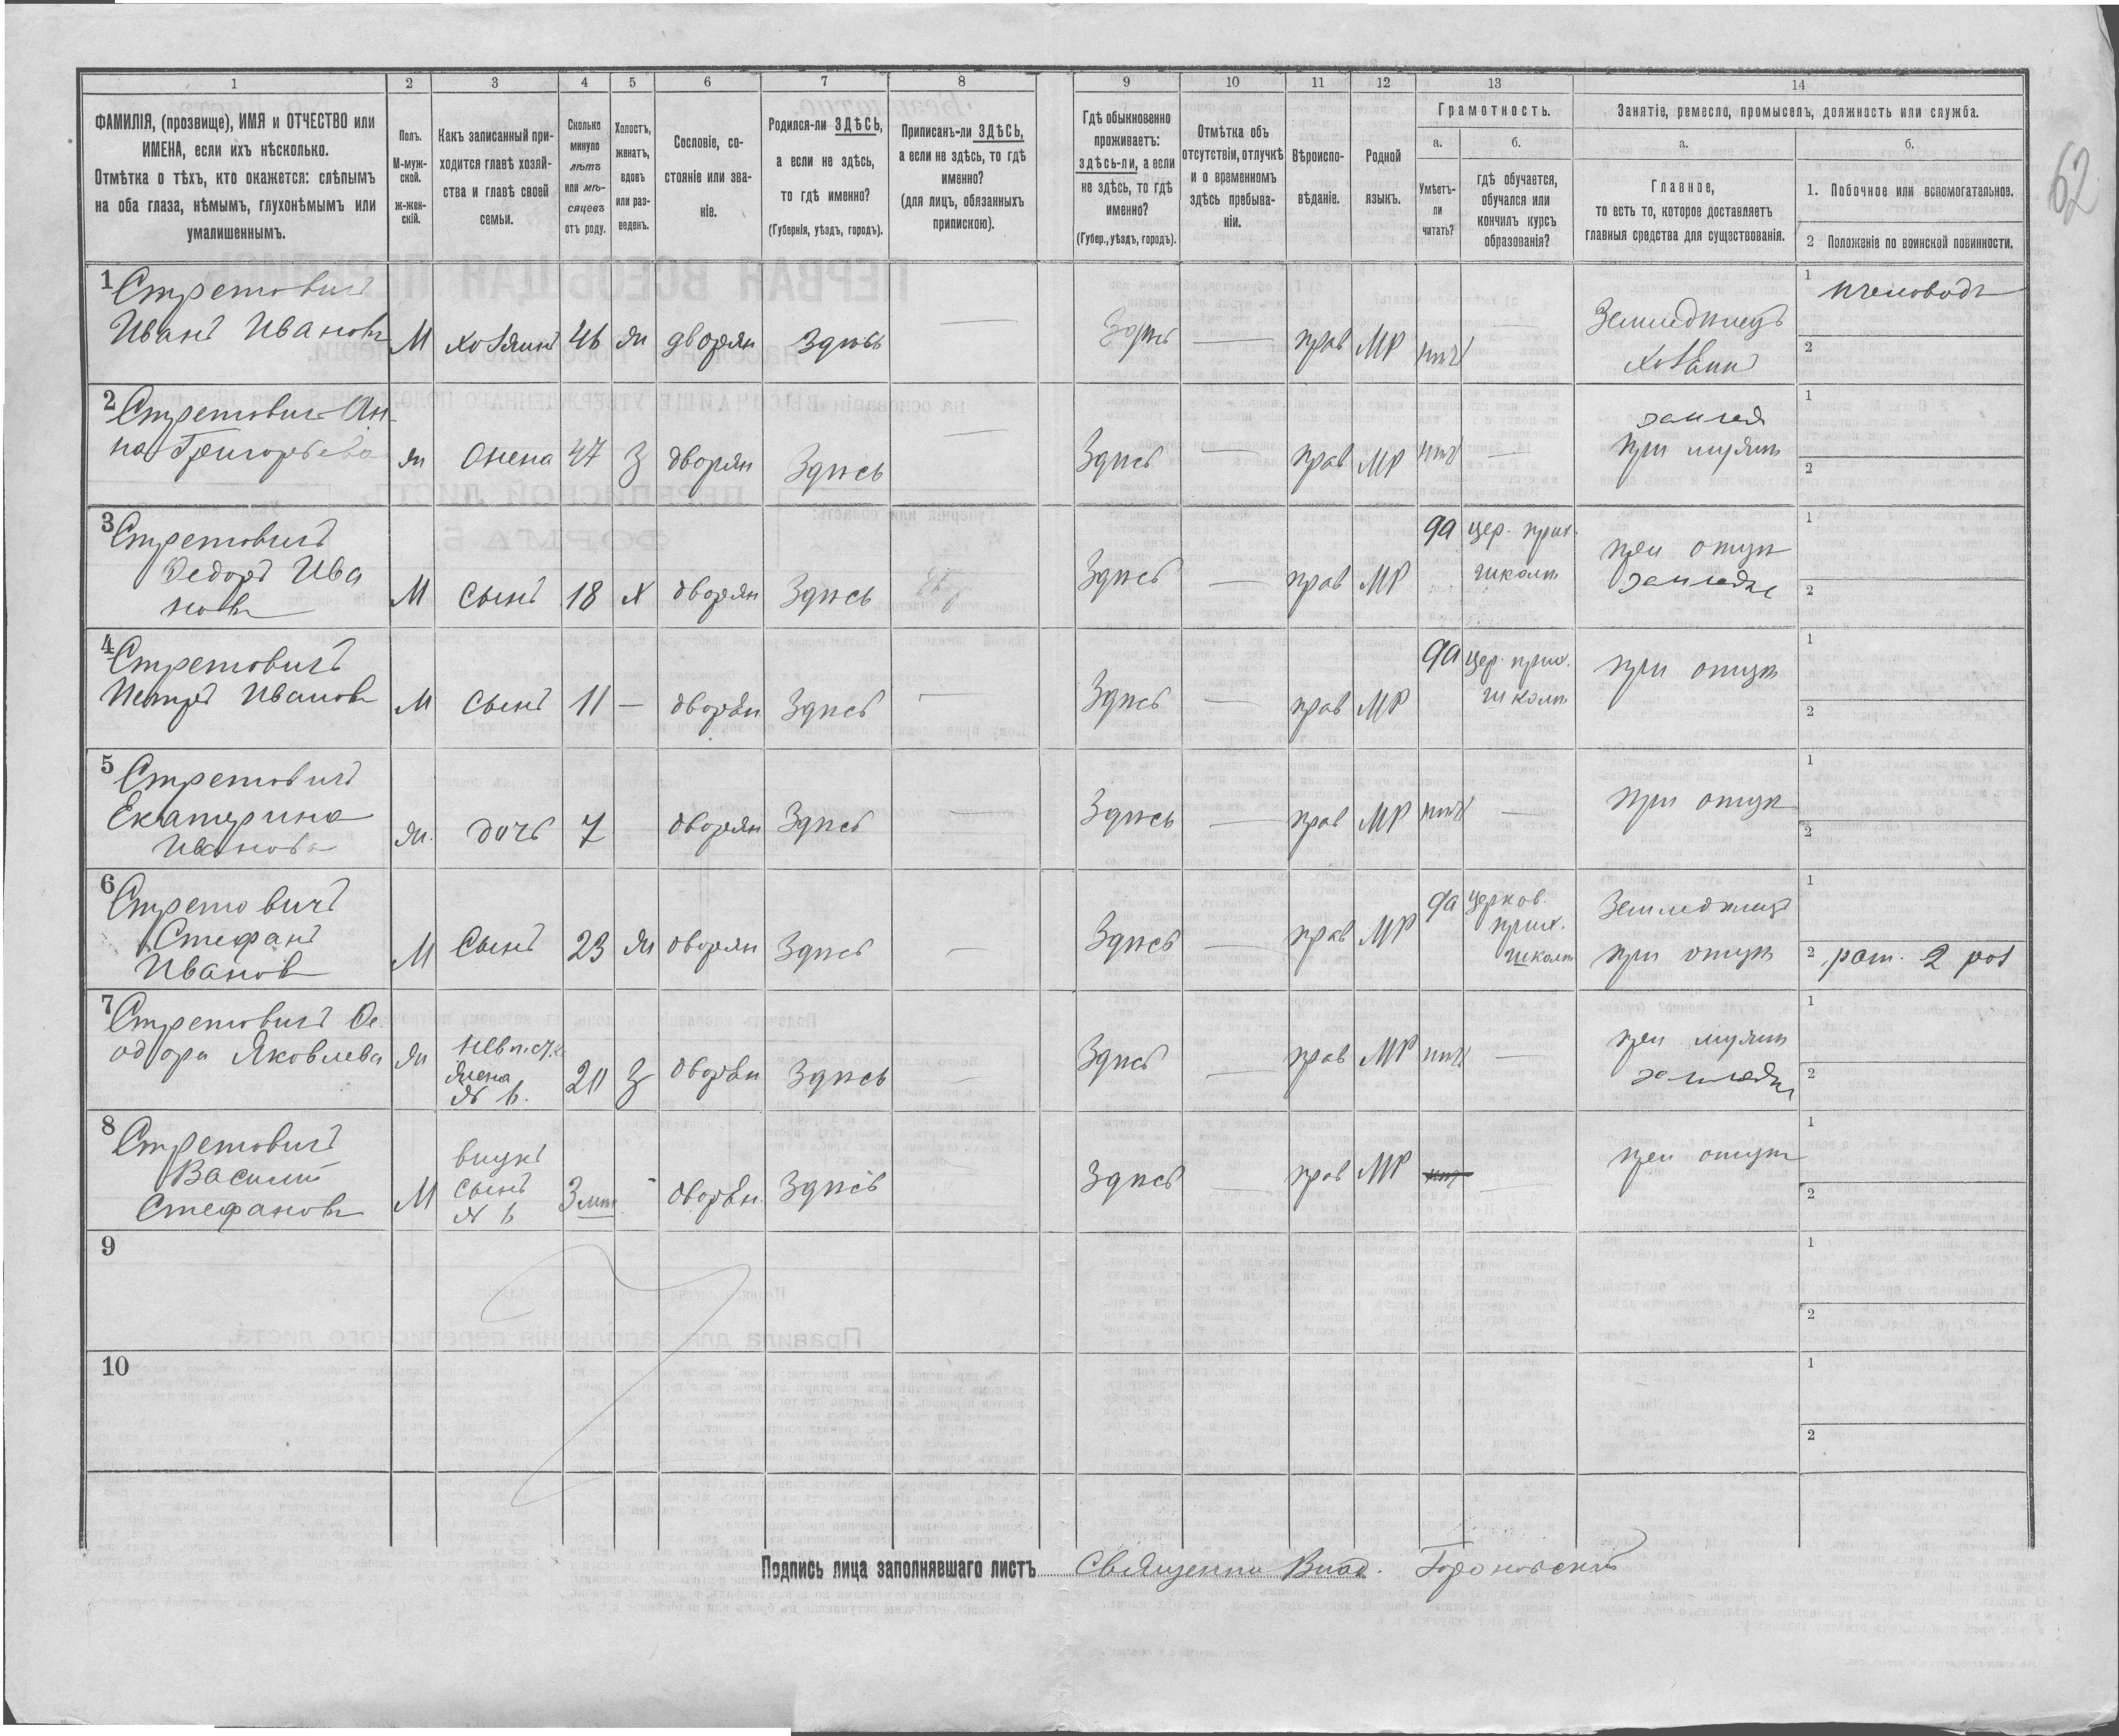 62
1 2 3 4 5 6 7 8 9 10 11 12 13 14
ФАМИЛІЯ, (прозвище), ИМЯ и ОТЧЕСТВО или
ИМЕНА, если ихъ нѣсколько.
Отмѣтка о тѣхъ, кто окажется: слѣпымъ
на оба глаза, нѣмымъ, глухонѣмымъ или
умалишеннымъ.
Полъ.
М-муж-
ской.
ж-жен-
скій.
Какъ записанный при-
ходится главѣ хозяй-
ства и главѣ своей
семьи.
Сколько
минуло
лѣтъ
или мѣ-
сяцевъ
отъ роду.
Холостъ,
женатъ,
вдовъ
или раз-
веденъ.
Сословіе, со-
стояніе или зва-
ніе.
Родился-ли ЗДѢСЬ,
а если не здѣсь,
то гдѣ именно?
(Губернія, уѣздъ, городъ).
Приписанъ-ли ЗДѢСЬ,
а если не здѣсь, то гдѣ
именно?
(для лицъ, обязанныхъ
припискою).
Гдѣ обыкновенно
проживаетъ:
здѣсь-ли, а если
не здѣсь, то гдѣ
именно?
(Губер., уѣздъ, городъ).
Отмѣтка объ
отсутствіи, отлучкѣ
и о временномъ
здѣсь пребыва-
ніи.
Вѣроиспо-
вѣданіе.
Родной
языкъ.
Грамотность.
а.
Умѣетъ-
ли
читать?
б.
гдѣ обучается,
обучался или
кончилъ курсъ
образованія?
Занятіе, ремесло, промыселъ, должность или служба.
а.
Главное,
то есть то, которое доставляетъ
главныя средства для существованія.
б.
1. Побочное или вспомогательное.
2 Положеніе по воинской повинности.
1 Стретовичъ
Иванъ Ивановъ М хозяинъ 46 ж дворян Здѣсь — Здѣсь — прав МР нѣтъ — Земледѣлецъ
хозяинъ
1 пчеловодъ
2
2 Стретовичъ Ан-
на Григорьева ж Жена 47 З дворян Здѣсь — Здѣсь — прав МР нѣтъ — землед
при мужѣ
1
2
3 Стретовичъ
Федоръ Ива
новъ М сынъ 18 Х дворян Здѣсь Здѣсь — прав МР да цер. прих.
школѣ
при отцѣ
1
2
4 Стретовичъ
Петръ Ивановъ М сынъ 11 — дворян Здѣсь — Здѣсь — прав МР да цер. прих.
школѣ
при отцѣ
1
2
5 Стретовичъ
Екатерина
Иванова ж. дочь 7 дворян Здѣсь — Здѣсь — прав МР нѣтъ — при отцѣ
1
2
6 Стретовичъ
Стефанъ
Ивановъ М Сынъ 23 ж дворян Здѣсь — Здѣсь — прав МР да церков.
прих.
школѣ
Земледѣлецъ
при отцѣ
1
2 рат. 2 раз
7 Стретовичъ Ѳе-
одора Яковлева ж невѣст.
жена
№ 6. 20 З дворян Здѣсь — Здѣсь — прав МР нѣтъ — при мужѣ
1
2
8 Стретовичъ
Василій
Стефановъ М внукъ
сынъ
№ 6 3 лѣт - дворян. Здѣсь Здѣсь — прав МР нѣтъ — при отцѣ
1
2
9
1
2
10
1
2
Подпись лица заполнявшаго листъ Священни Влад.